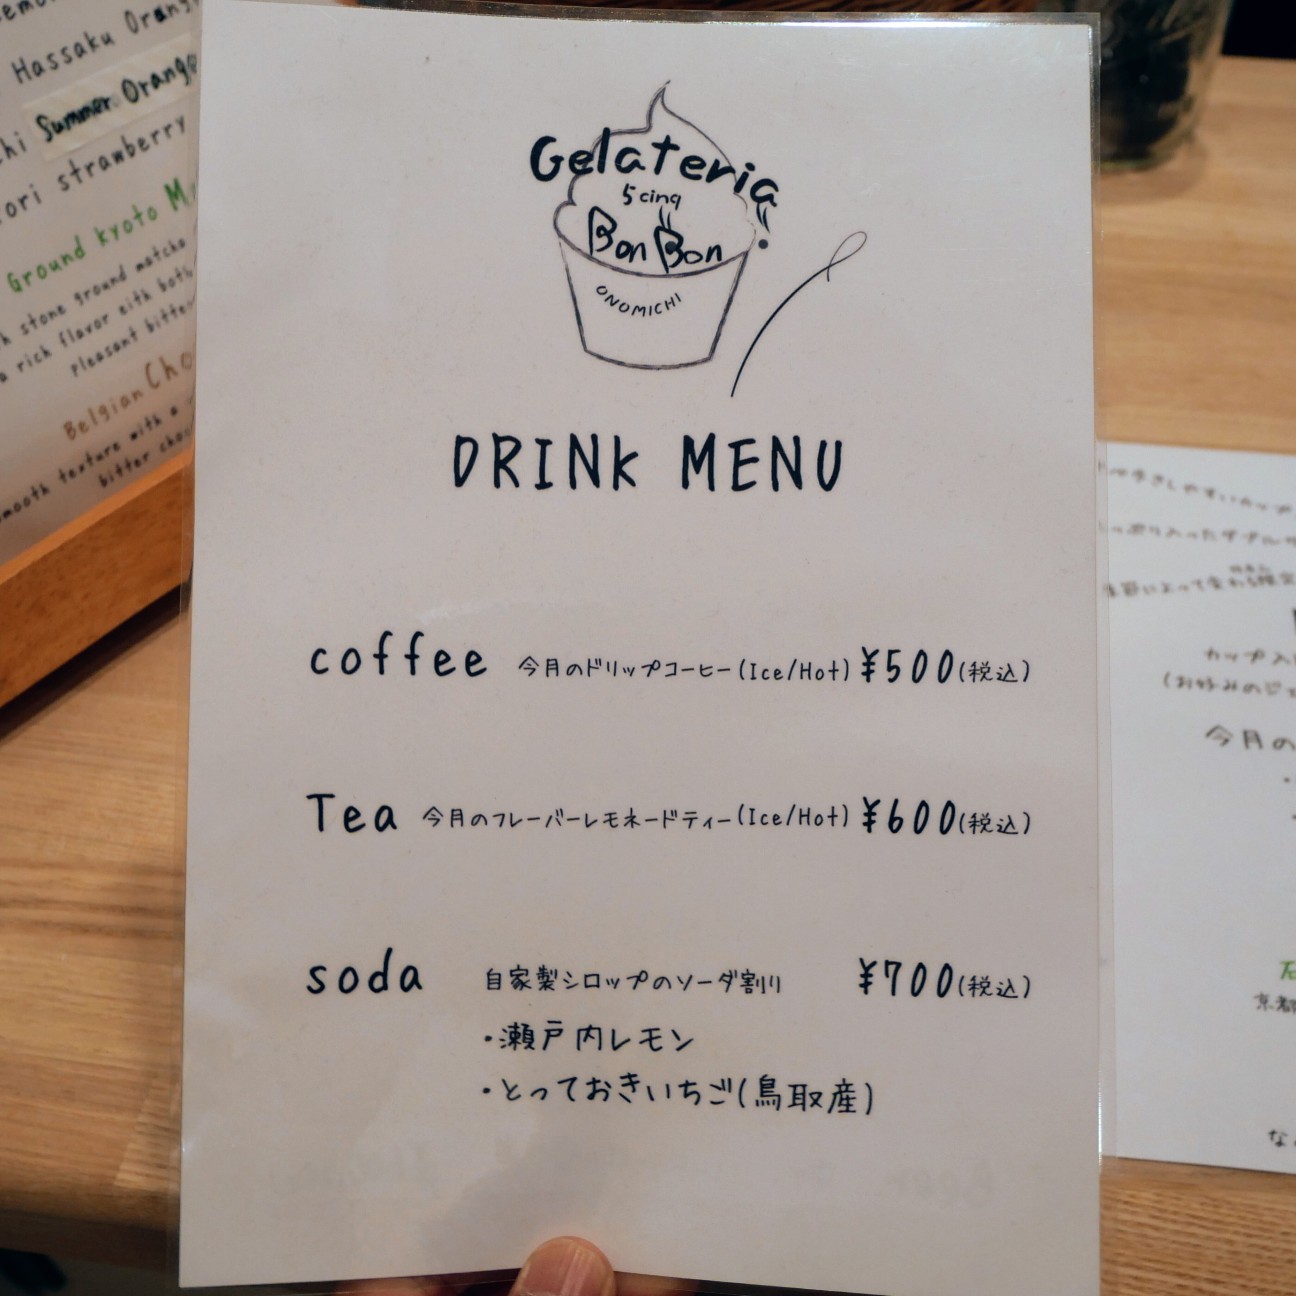 Gelateria
5 cinq
BonBon
ONOMICHI
DRINK MENU
coffee 今月のドリップコーヒー(Ice/Hot) ¥500(税込)
Tea 今月のフレーバーレモネードティー(Ice/Hot) ¥600(税込)
soda 自家製シロップのソーダ割り ¥700(税込)
・瀬戸内レモン
・とっておきいちご(鳥取産)
Hassaku Orange
Summer Orange
strawberry
Ground kyoto
stone ground matcha
a rich flavor eith both
pleasant bitter
Belgian Cho
smooth texture with a
bitter choc
季節によって変わる限定
カップ入
(お好みのジェ
今月の
京都